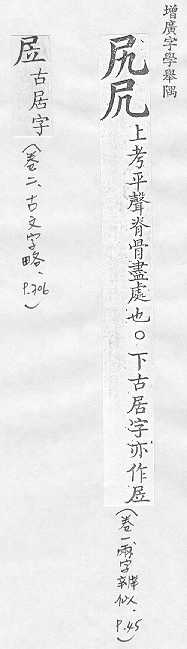 增廣字學舉隅
尻凥上考平聲脊骨盡處也○下古居字亦作㞐(卷一、兩字辨似、P.45)
㞐古居字(卷二、古文字略、P.206)